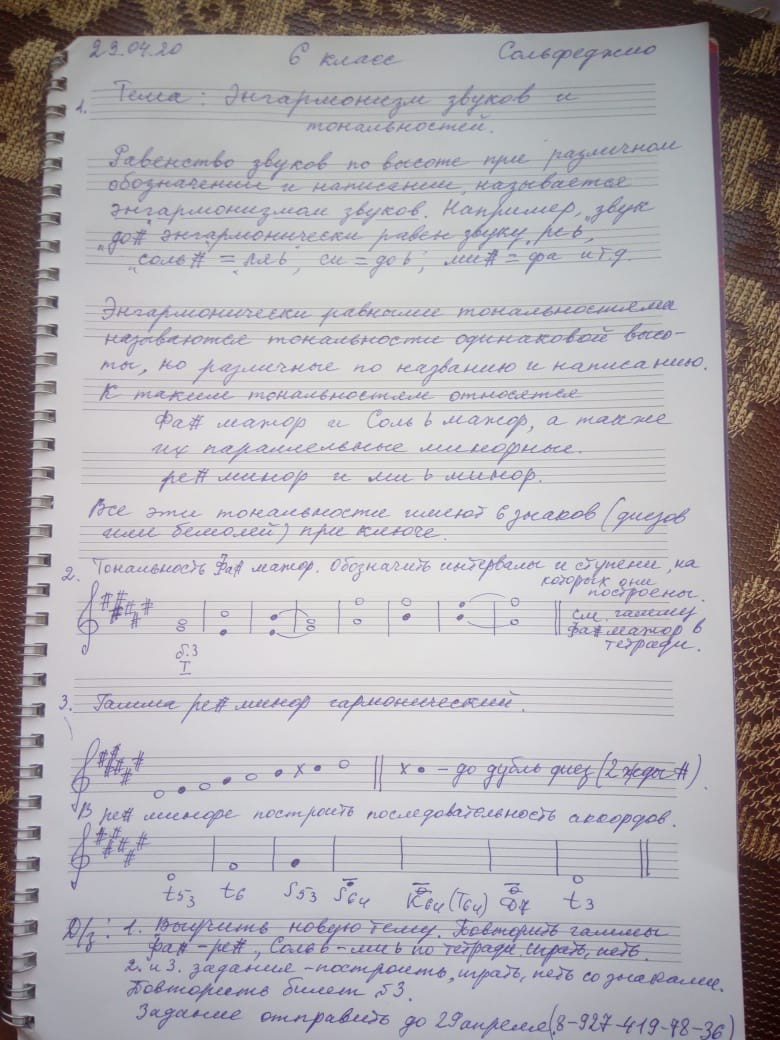 29.04.20 6 класс Сольфеджио
1. Тема: Энгармонизм звуков и
тональностей.
Равенство звуков по высоте при различном
обозначении и написании, называется
энгармонизмом звуков. Например, "звук
"до#" энгармонически равен звуку "ре♭",
"соль# = "ля♭", си = до♭, ми# = фа и т.д.
Энгармонически равными тональностяма
называются тональности одинаковой высо-
ты, но различные по названию и написанию.
К таким тональностям относятся
Фа# мажор и Соль♭ мажор, а также
их параллельные минорные.
ре# минор и ми♭ минор.
Все эти тональности имеют 6 знаков (диезов
или бемолей) при ключе.
2. Тональность Фа# мажор. Обозначить интервалы и ступени, на
которых они
построены.
см. гамму
Фа# мажор в
тетради.
б.3
I
3. Гамма ре# минор гармонический.
х • – до дубль диез (2жды #).
В ре# миноре построить последовательность аккордов.
t53 t6 s53 s64 K64 (T64) D7 t3
Д/з: 1. Выучить новую тему. Повторить гаммы
Фа# – ре#, Соль♭ – ми♭ по тетради. играть, петь.
2. и 3. задания – построить, играть, петь со знаками.
Повторить билет №3.
Задание отправить до 29 апреля (8-927-419-78-36)